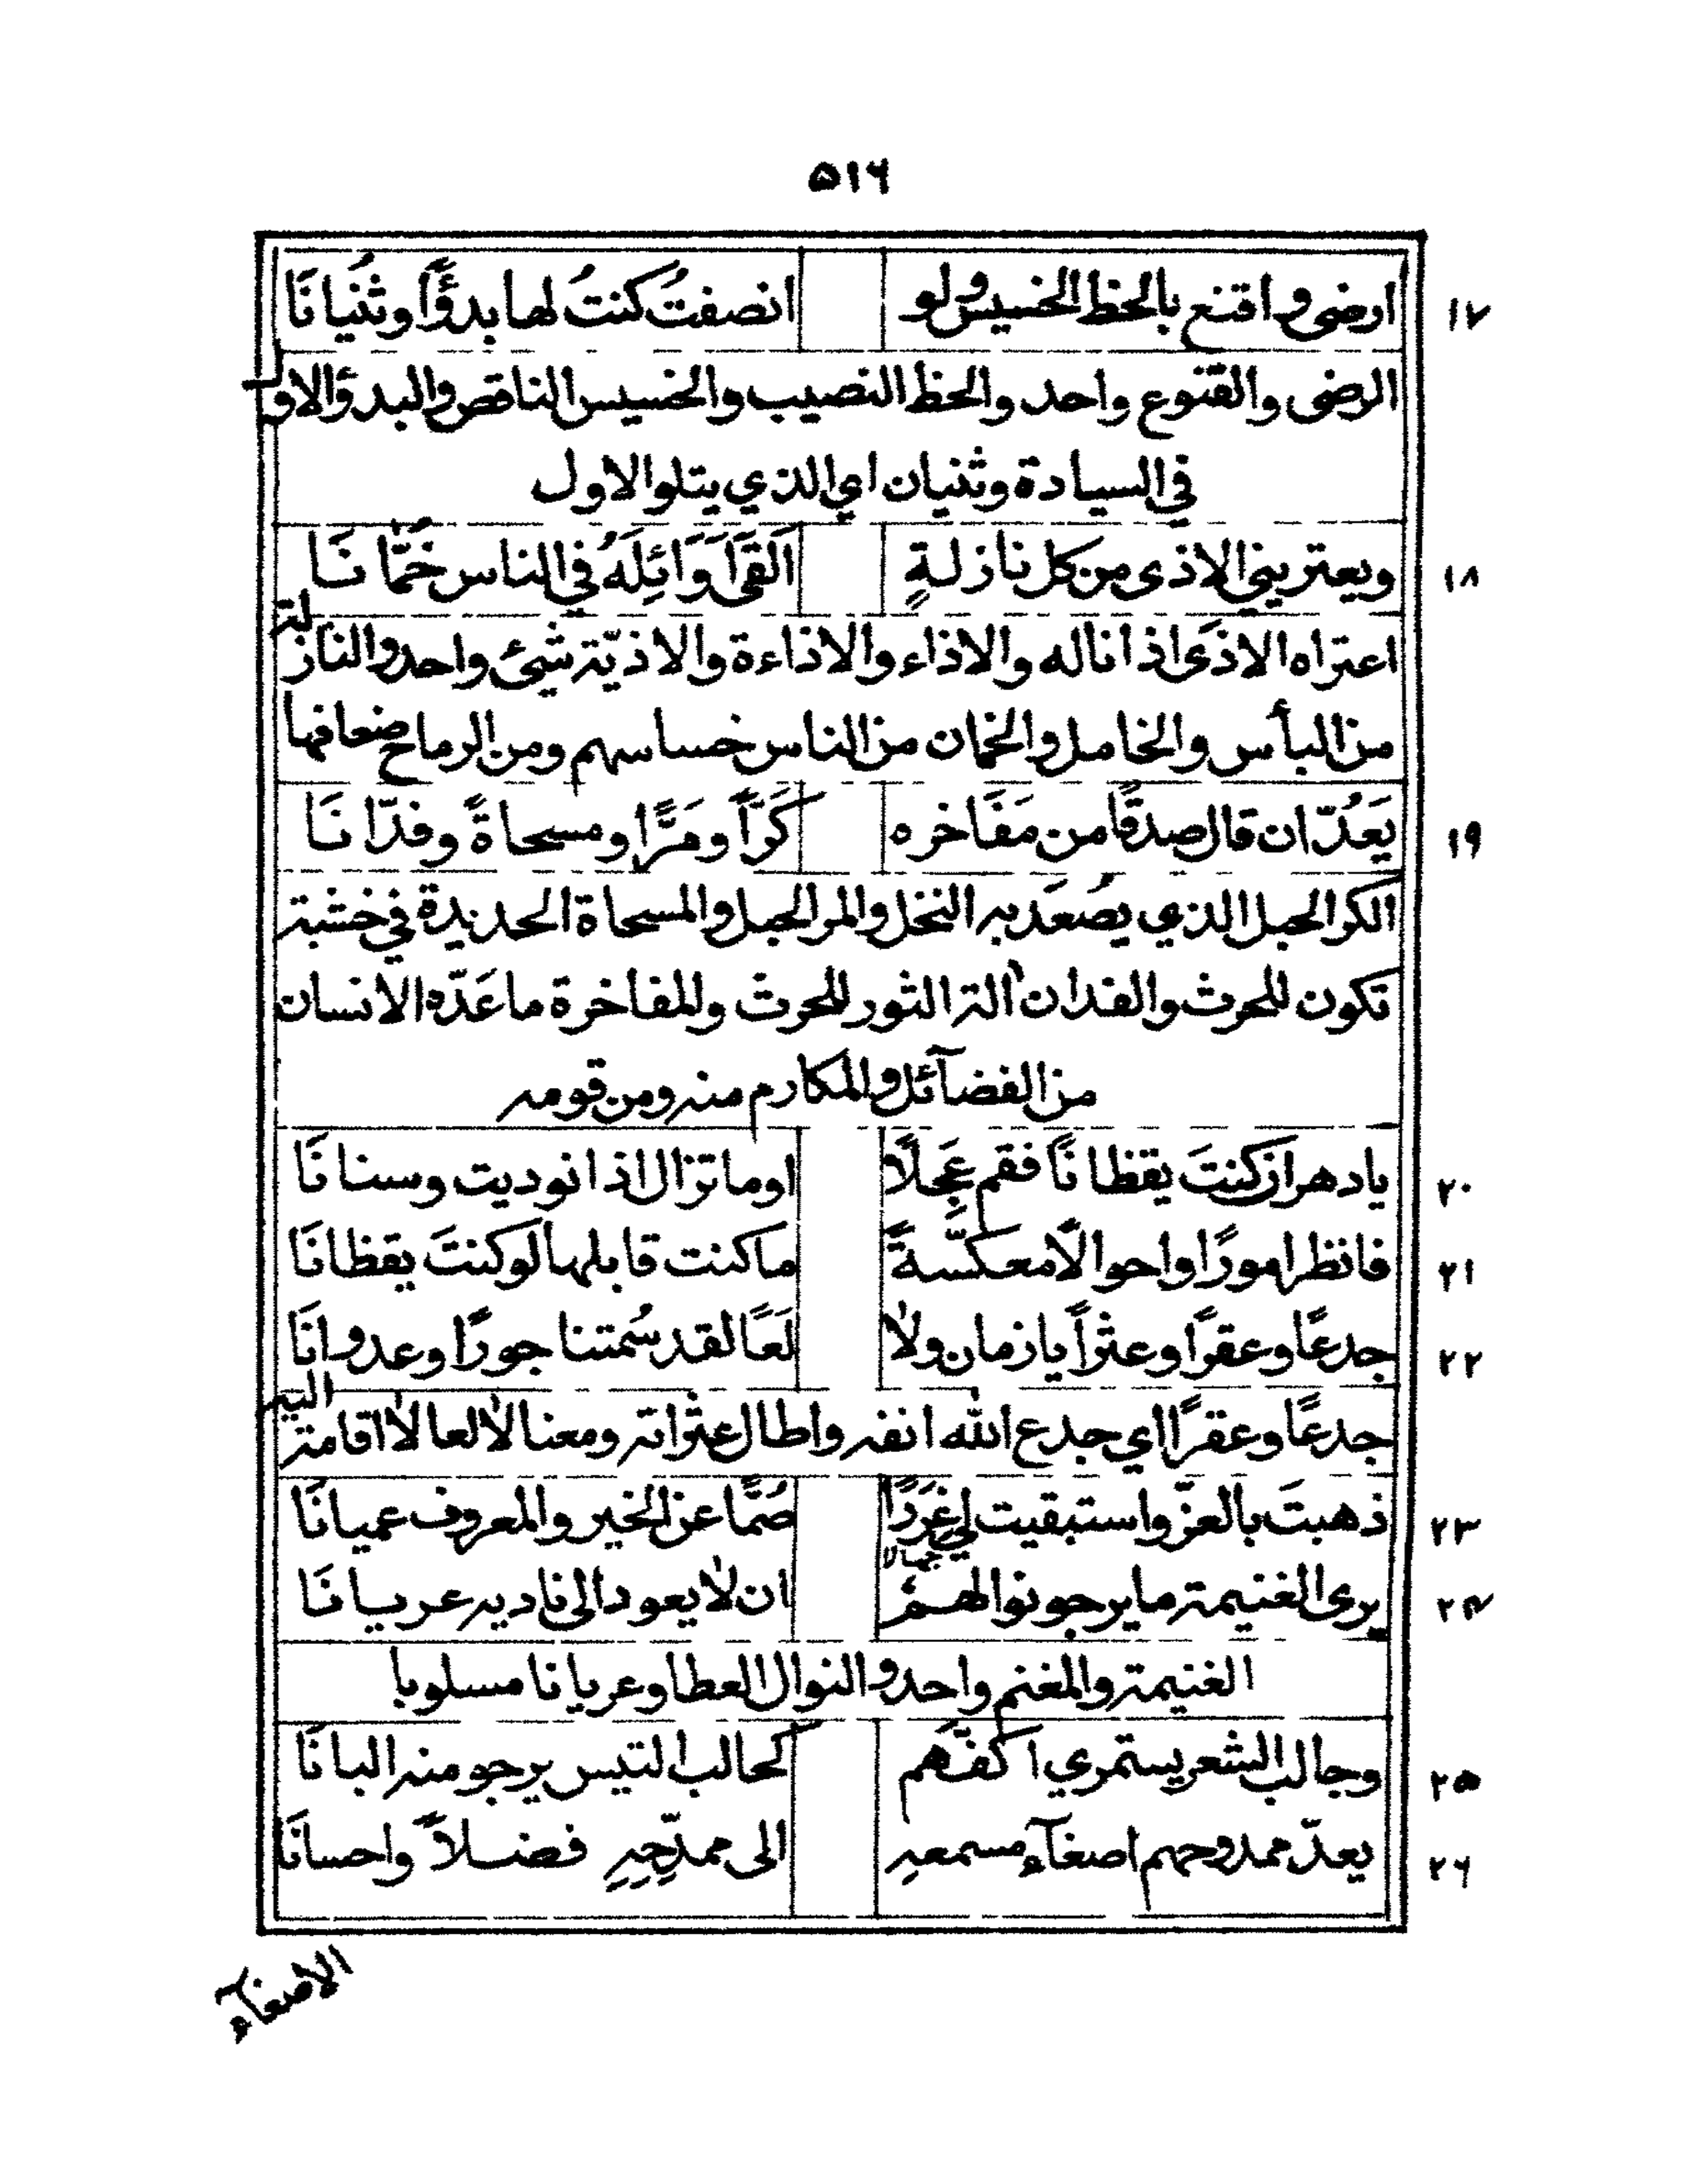 ٥١٦
١٧ ارضى واقنع بالحظ الخسيس ولو انصفتُ كنتُ لها بدؤًا وثُنيانَا
الرضى والقنوع واحد والحظ النصيب والخسيس الناقص والبدؤ الاول
في السيادة وثنيان اي الذي يتلوا الاول
١٨ ويعتريني الاذى من كل نازلةٍ اَلقىَ اَوَائِلَهُ في الناس خَمّانَا
اعتراه الاذَى اذا ناله والاذاء والاذاءة والاذيّة شيئ واحد والنازلة
من البأس والخامل والخمان من الناس خساسهم ومن الرماح ضعافها
١٩ يَعُدّ ان قال صدقًا من مَفَاخره كَرّاً ومَرًّا ومسحاةً وفدّانَا
الكر الحبل الذي يصُعَد به النخل والمر الحبل والمسحاة الحديدة في خشبة
تكون للحرث والفدان الة الثور للحرث والمفاخرة ما عَدّه الانسان
من الفضآئل والمكارم منه ومن قومه
٢٠ يا دهر ان كنتَ يقظانًا فقم عَجِلًا او ما تزال اذا نوديت وسنانَا
٢١ فانظر امورًا واحوالًا معكّسةً ما كنت قابلها لو كنتَ يقظانَا
٢٢ جدعًا وعقرًا وعثراً يا زمان ولا لَعًا لقد سُمتنا جورًا وعدوانَا
جدعًا وعقرًا اي جدع الله انفه واطال عثراته ومعنا لا لعا لا اقامة اليه
٢٣ ذهبتَ بالعزّ واستبقيت لي غَرَدًا صُمًّا عن الخير والمعروف عميانَا
٢٤ يرى الغنيمة ما يرجو نوالهمُ جهالا ان لا يعود الى ناديه عريانَا
الغنيمة والمغنم واحد والنوال العطا وعريانا مسلوبا
٢٥ وجالب الشعر يستمري اكفّهم كحالب التيس يرجو منه البانَا
٢٦ يعدّ ممدوحهم اصغآء مسمعهِ الى ممدّحِهِ فضلاً واحسانَا
الاصغآء